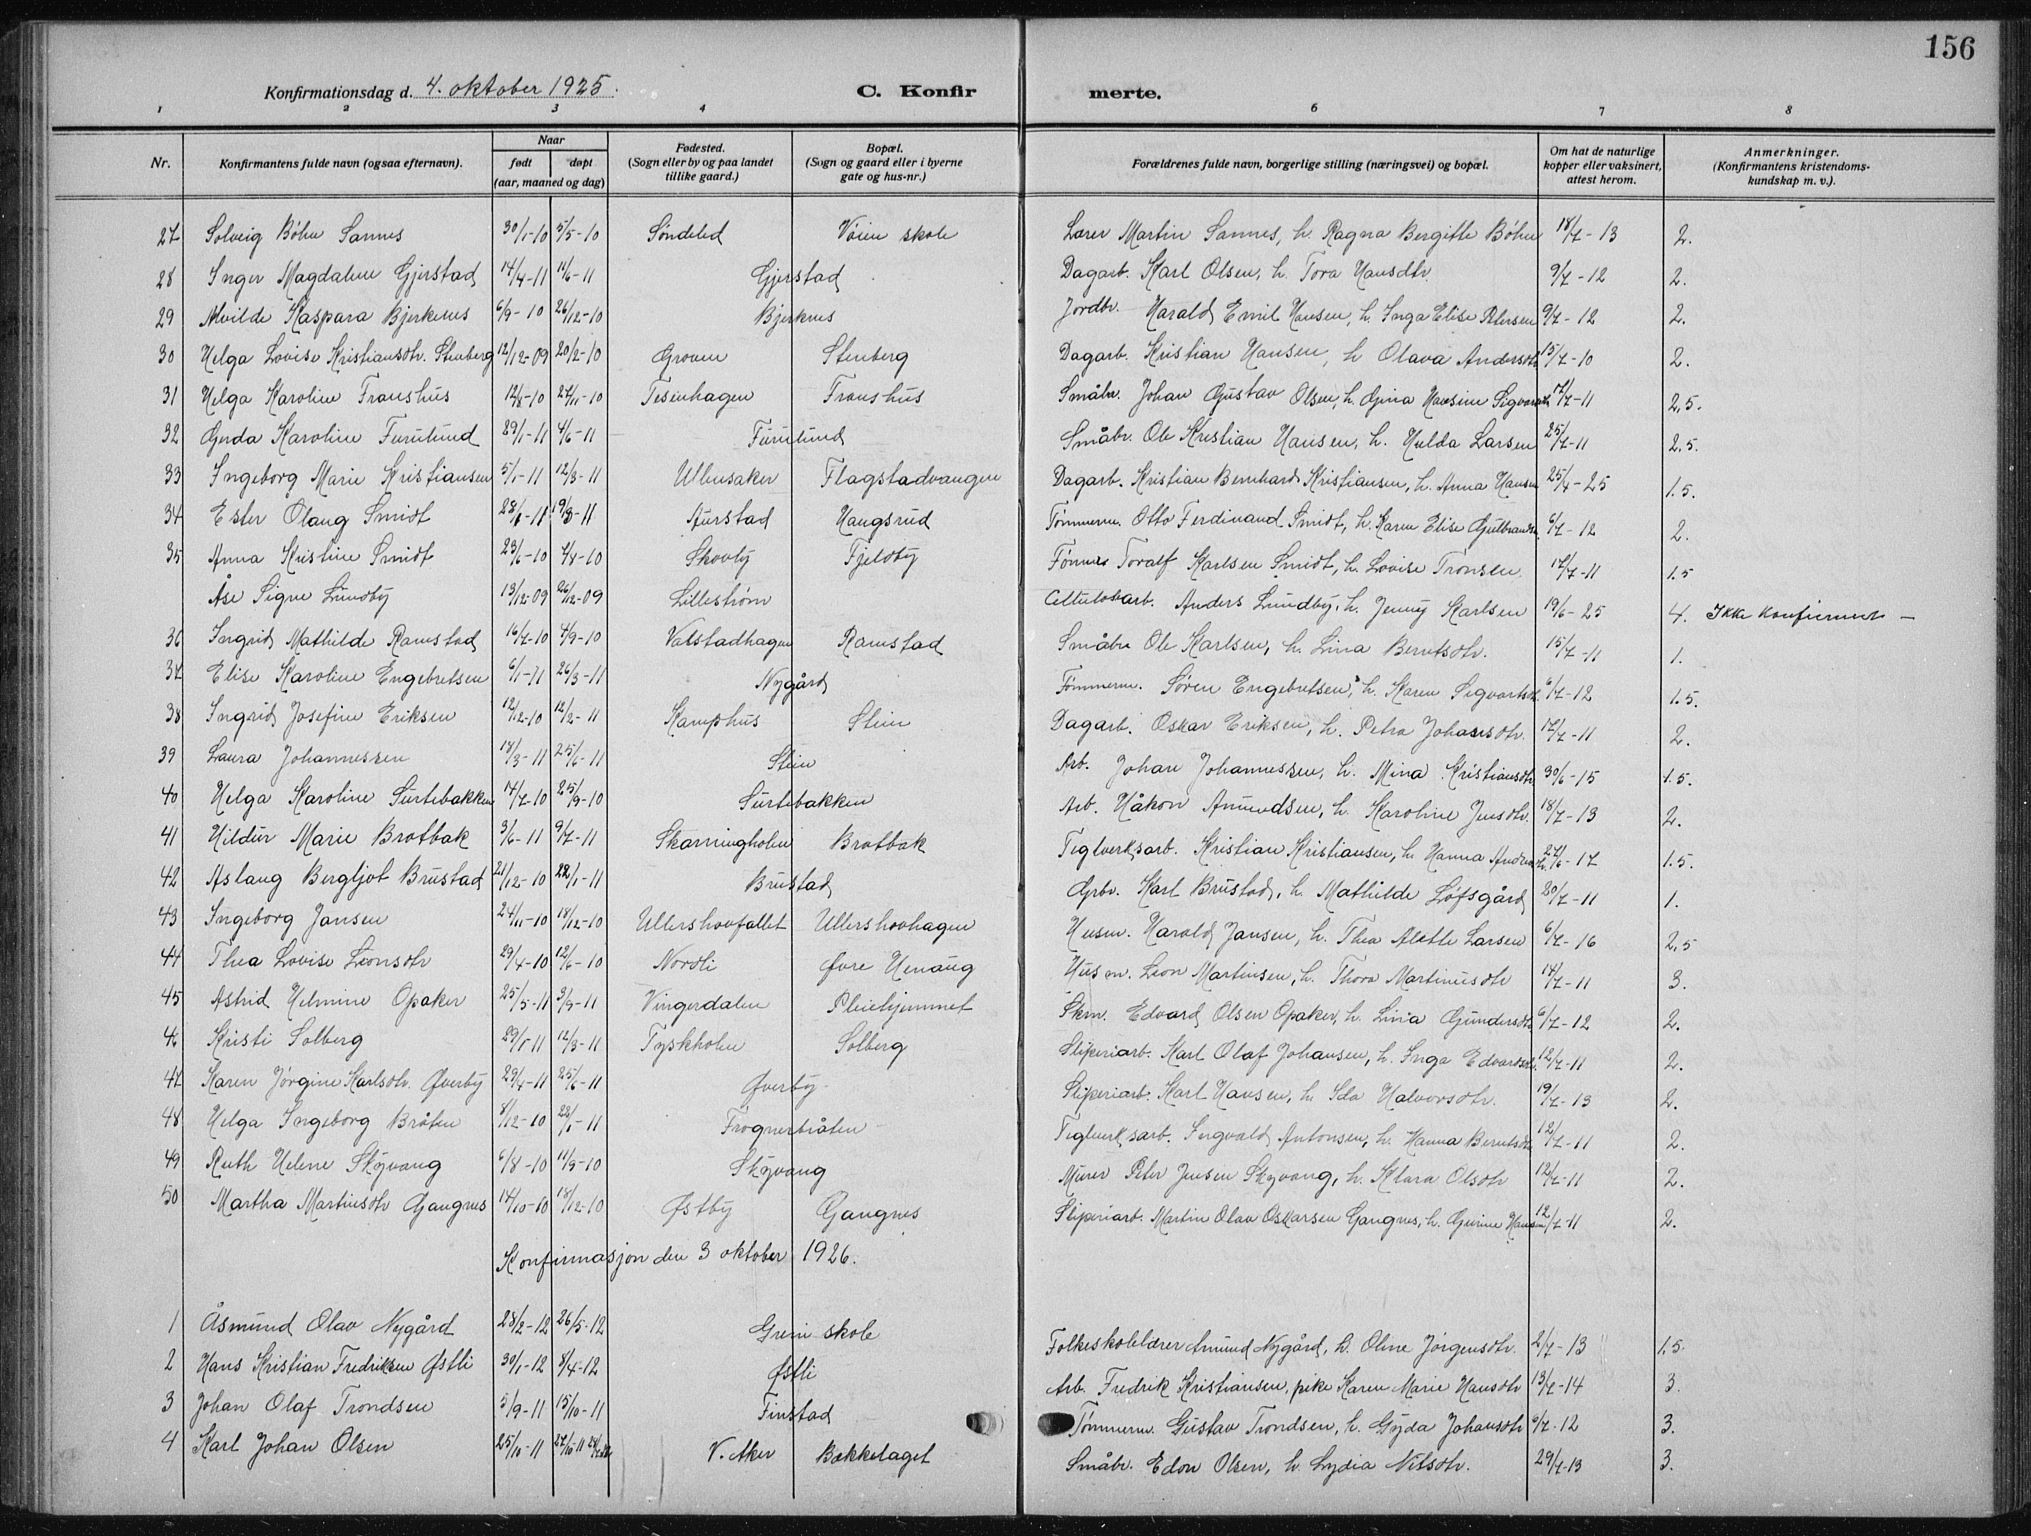 156
Konfirmationsdag d. 4. oktober 1925. C. Konfirmerte.
1 2 3 4 6 7 8
Nr. Konfirmantens fulde navn (ogsaa efternavn). Naar født døpt (aar, maaned og dag) Fødested. (Sogn eller by og paa landet tillike gaard.) Bopæl. (Sogn og gaard eller i byerne gate og hus-nr.) Forældrenes fulde navn, borgerlige stilling (næringsvei) og bopæl. Om hat de naturlige kopper eller vaksinert, attest herom. Anmerkninger. (Konfirmantens kristendomskundskap m. v.).
27 Solveig Bøhn Sannes 30/1-10 5/5-10 Søndeled Vøien skole Lærer Martin Sannes, h. Ragna Bergitte Bøhn 18/7-13 2.
28 Inger Magdalene Gjerstad 14/4-11 11/6-11 Gjerstad Dagarb. Karl Olsen, h. Tora Hansdtr. 9/7-12 2.
29 Alvilde Kaspara Bjerknes 6/9-10 26/12-10 Bjerknes Jordbr. Harald Emil Hansen, h. Inga Elise Petersen 9/7-12 2.
30 Helga Lovise Kristiansdtr. Stenberg 12/12-09 20/2-10 Groven Stenberg Dagarb. Kristian Hansen, h Olava Andersdtr 15/7-10 2.
31 Helga Karoline Franshus 12/8-10 27/11-10 Tesenhagen Franshus Småbr. Johan Gustav Olsen, h. Gina Hansine Sigvardt. 17/7-11 2,5.
32 Gerda Karoline Furulund 29/1-11 4/6-11 Furulund Småbr. Ole Kristian Hansen, h. Hulda Larsen 25/7-11 2,5.
33 Ingeborg Marie Kristiansen 5/1-11 12/3-11 Ullensaker Flagstadvangen Dagarb. Kristian Bernhard Kristiansen, h. Anna Hansen 25/4-25 1.5.
34 Ester Olaug Smidt 28/6-11 19/8-11 Aurstad Haugsrud Tømmerm. Otto Ferdinand Smidt, h. Karen Elise Gulbrands. 6/7-12 2.
35 Anna Kristine Smidt 23/6-10 7/8-10 Skovby Fjeldby Tømmer Toralf Karlsen Smidt, h. Lovise Tronsen. 17/7-11 1.5
Åse Signe Lundby 13/12-09 26/12-09 Lillestrøm Cellulosearb. Anders Lundby, h. Jenny Karlsen 19/6-25 4. Ikke konfirmert -
36 Ingrid Mathilde Ramstad 16/7-10 4/9-10 Valstadhagen Ramstad Småbr Ole Karlsen, h. Lina Berntsdtr. 15/7-11 1.
37 Elise Karoline Engebretsen 6/1-11 26/3-11 Nygård Tømmerm. Søren Engebretsen, h. Karen Sigvartsd. 6/7-12 1.5.
38 Ingrid Josefine Eriksen 12/12-10 12/2-11 Kamphus Stein Dagarb. Oskar Eriksen, h. Petra Johansdtr. 17/7-11 2.
39 Laura Johannessen 18/3-11 25/6-11 Stein Arb. Johan Johannessen, h. Mina Kristiansdtr 30/6-15 1.5.
40 Helga Karoline Surtebakken 14/7-10 25/9-10 Surtebakken Arb. Håkon Amundsen, h. Karoline Jensdtr. 18/7-13 2.
41 Hildur Marie Brotbak 3/6-11 9/7-11 Skarningholen Brotbak Teglverksarb. Kristian Kristiansen, h. Hanna Andreasdtr. 27/6-17 1.5.
42 Aslaug Bergljot Brustad 21/12-10 22/1-11 Brustad Grbr. Karl Brustad, h. Mathilde Løfsgård 20/7-11 1.
43 Ingeborg Jansen 24/11-10 18/12-10 Ullershovfallet Ullershovhagen Husm. Harald Jansen, h. Thea Alette Larsen 6/7-16 2,5
44 Thea Lovise Leonsdtr 29/4-10 12/6-10 Nordli Øvre Henaug Husm. Leon Martinsen, h. Thora Martinusdtr 14/7-11 3.
45 Astrid Helmine Opaker 25/5-11 3/9-11 Vingerdalen Pleiehjemmet Skm. Edvard Olsen Opaker, h. Lina Gundersdtr 6/7-12 2.
46 Kristi Solberg 29/1-11 12/3-11 Tyskholen Solberg Sliperiarb. Karl Olaf Johansen, h. Inga Edvardsdtr. 12/7-11 2.
47 Karen Jørgine Karlsdtr. Øverby 29/4-11 25/6-11 Øverby Sliperiarb. Karl Hansen, h. Ida Halvorsdtr. 19/7-13 2.
48 Helga Ingeborg Bråten 8/12-10 28/1-11 Frognerbråten Teglverksarb. Ingvald Antonsen, h. Hanna Berntsdtr 12/7-11 2.
49 Ruth Helene Skyvang 6/8-10 11/9-10 Skyvang Murer Peter Jensen Skyvang, h. Klara Olsdtr 12/7-11 2.
50 Martha Martinsdtr Gangnes 14/10-10 18/12-10 Østby Gangnes Sliperiarb. Martin Olav Oskarsen Gangnes, h. Gurine Hansen 12/7-11 2.
Konfirmasjon den 3 oktober 1926.
1 Åsmund Olav Nygård 28/2-12 26/5-12 Greni skole Folkeskolelærer Amund Nygård, h. Oline Jørgensdtr. 2/7-13 1.5.
2 Hans Kristian Fredriksen Østli 30/1-12 8/4-12 Østli Arb. Fredrik Kristiansen, pike Karen Marie Hansdtr 13/7-14 3.
3 Johan Olaf Trondsen 5/9-11 15/10-11 Finstad Tømmerm. Gustav Trondsen, h. Gyda Johansdtr 6/7-12 3.
4 Karl Johan Olsen 25/10-11 27/10-11 V. Aker Bækkelaget Småbr. Edon Olsen, h. Lydia Nilsdtr. 29/7-13 3.